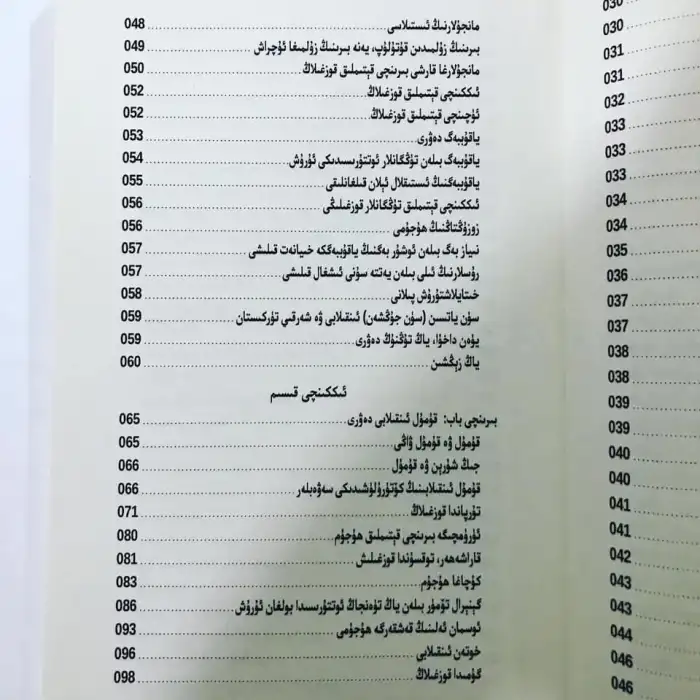 مانجۇلارنىڭ ئىستىلاسى 048
بىرىنىڭ زۇلمىدىن قۇتۇلۇپ، يەنە بىرىنىڭ زۇلمىغا ئۇچراش 049
مانجۇلارغا قارشى بىرىنچى قېتىملىق قوزغىلاڭ 050
ئىككىنچى قېتىملىق قوزغىلاڭ 052
ئۈچىنچى قېتىملىق قوزغىلاڭ 052
ياقۇببەگ دەۋرى 053
ياقۇببەگ بىلەن تۇڭگانلار ئوتتۇرىسىدىكى ئۇرۇش 054
ياقۇببەگنىڭ ئىستىقلال ئېلان قىلغانلىقى 055
ئىككىنچى قېتىملىق تۇڭگانلار قوزغىلىڭى 056
زوزۇڭتاڭنىڭ ھۇجۇمى 056
نىياز بەگ بىلەن ئوشۇر بەگنىڭ ياقۇببەگكە خىيانەت قىلىشى 057
رۇسلارنىڭ ئىلى بىلەن يەتتە سۇنى ئىشغال قىلىشى 057
خىتايلاشتۇرۇش پىلانى 058
سۈن ياتسىن (سۈن جۇڭشەن) ئىنقىلابى ۋە شەرقىي تۈركىستان 059
يۈەن داخۇا، ياڭ تۇڭنۇڭ دەۋرى 059
ياڭ زېڭشىن 060
ئىككىنچى قىسىم
بىرىنچى باب: قۇمۇل ئىنقىلابى دەۋرى 065
قۇمۇل ۋە قۇمۇل ۋاڭى 065
جىڭ شۇرېن ۋە قۇمۇل 066
قۇمۇل ئىنقىلابىنىڭ كۆتۈرۈلۈشىدىكى سەۋەبلەر 066
تۇرپاندا قوزغىلاڭ 071
ئۈرۈمچىگە بىرىنچى قېتىملىق ھۇجۇم 080
قاراشەھەر، توقسۇندا قوزغىلىش 081
كۇچاغا ھۇجۇم 083
گېنېرال تۆمۈر بىلەن ياڭ تۇەنجاڭ ئوتتۇرىسىدا بولغان ئۇرۇش 086
ئوسمان ئەلىنىڭ قەشقەرگە ھۇجۇمى 093
خوتەن ئىنقىلابى 096
گۇمىدا قوزغىلاڭ 098
030
030
031
031
032
033
033
033
034
034
035
036
037
037
038
038
039
039
040
040
041
041
042
043
043
044
046
046